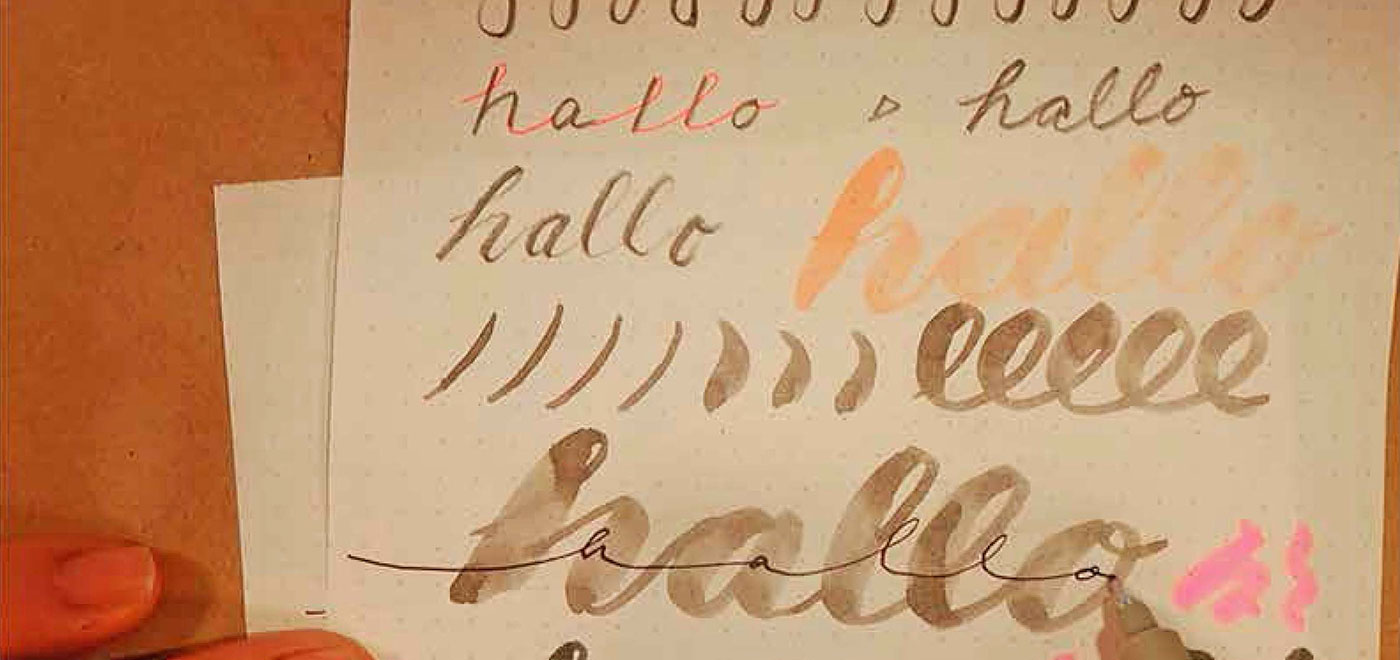 hallo hallo
hallo hallo
hallo
hallo